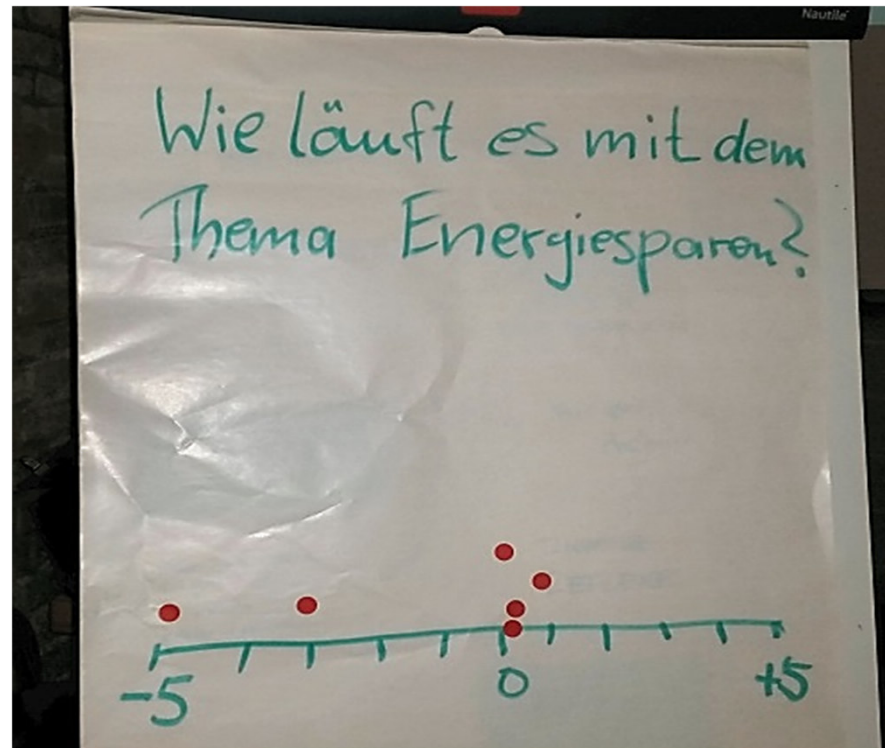 Nautile
Wie läuft es mit dem
Thema Energiesparen?
-5 0 +5